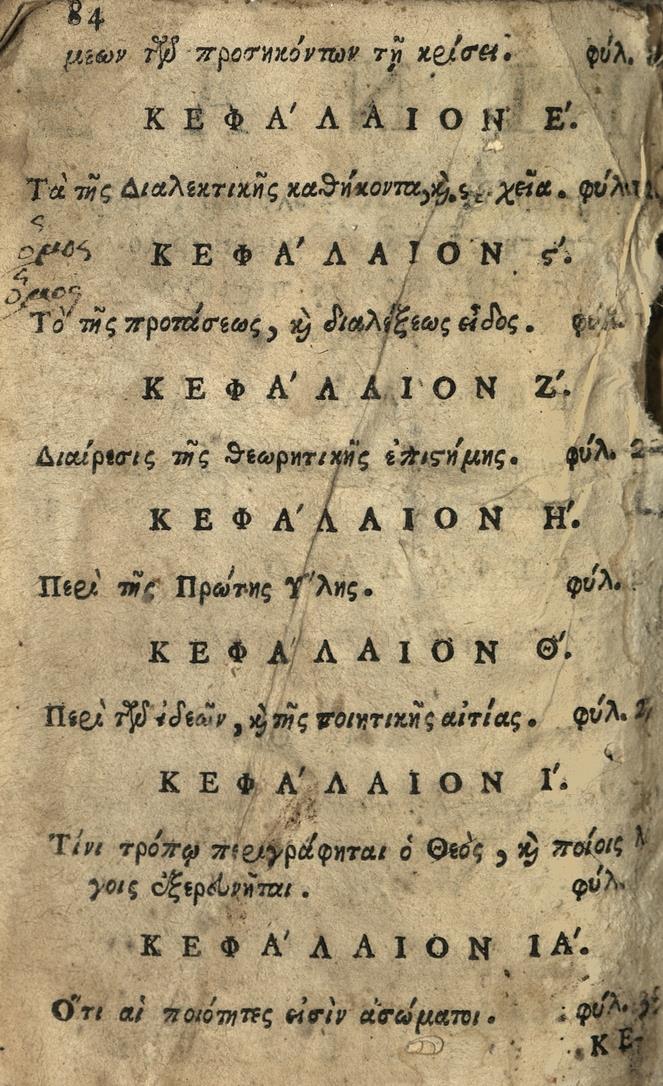 84
μεων τῶν προσηκόντων τῇ κρίσει. φύλ.
ΚΕΦΑ΄ΛΑΙΟΝ Ε΄.
Τὰ τῆς Διαλεκτικῆς καθήκοντα, καὶ χεῖα. φύλ.
ΚΕΦΑ΄ΛΑΙΟΝ ϛ΄.
ὅμος
ὅμος
Τὸ τῆς προτάσεως, καὶ διαλέξεως εἶδος. φύλ.
ΚΕΦΑ΄ΛΑΙΟΝ Ζ΄.
Διαίρεσις τῆς θεωρητικῆς ἐπιστήμης. φύλ.
ΚΕΦΑ΄ΛΑΙΟΝ Η΄.
Περὶ τῆς Πρώτης Υ῞λης. φύλ.
ΚΕΦΑ΄ΛΑΙΟΝ Θ΄.
Περὶ τῶν ἰδεῶν, καὶ τῆς ποιητικῆς αἰτίας. φύλ.
ΚΕΦΑ΄ΛΑΙΟΝ Ι΄.
Τίνι τρόπῳ περιγράφηται ὁ Θεὸς, καὶ ποίοις λ
γοις ἐξερευνῆται. φύλ.
ΚΕΦΑ΄ΛΑΙΟΝ ΙΑ΄.
Ὅτι αἱ ποιότητες εἰσὶν ἀσώματοι. φύλ.
ΚΕ-